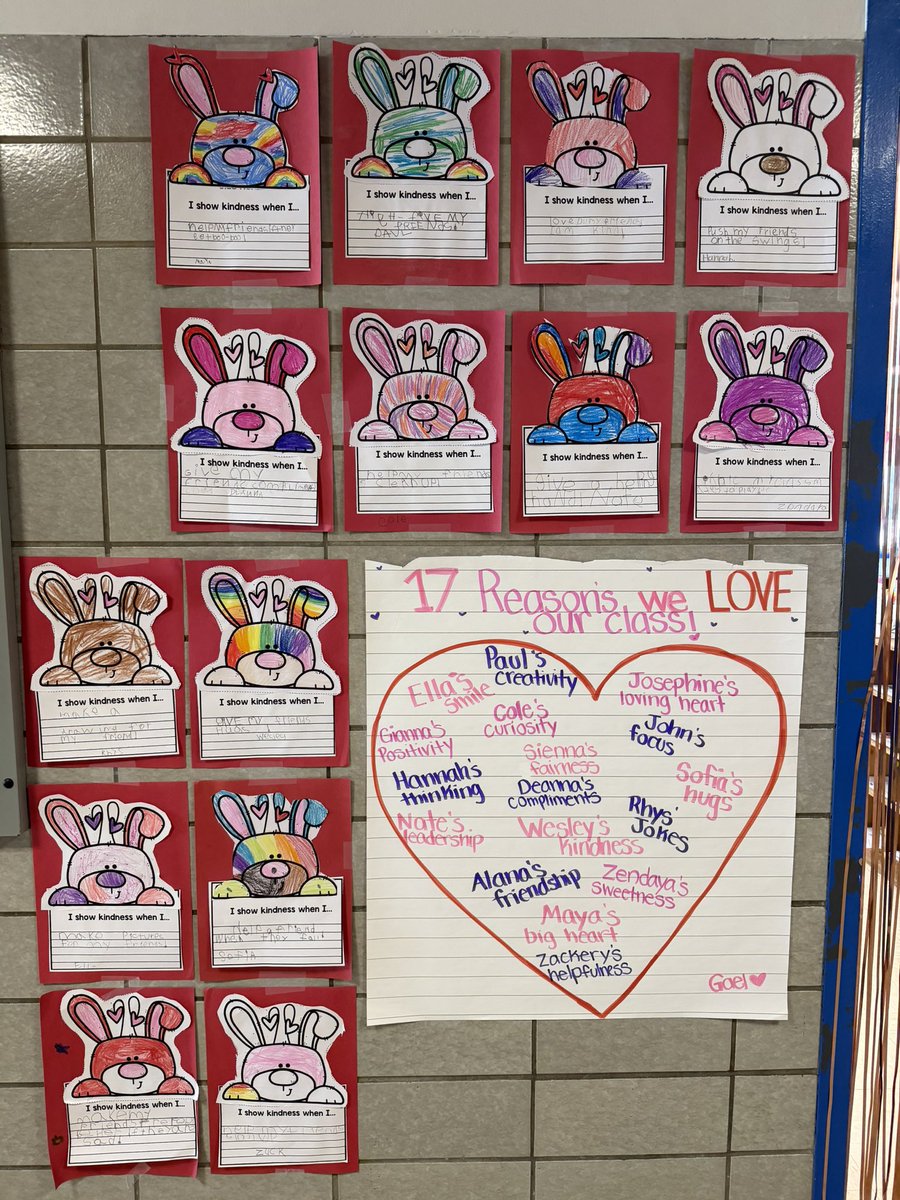 I show kindness when I...
help
I show kindness when I...
MY
FRIENDS!
I show kindness when I...
love
I am kind
I show kindness when I...
Push my friends
on the swings!
Hannah
I show kindness when I...
Give my
I show kindness when I...
help my friends
cleanup
Cole
I show kindness when I...
Give a
Nate
I show kindness when I...
Zendaya
I show kindness when I...
make a
drawing for
my friend!
Rhys
I show kindness when I...
Give my friends
hugs
Wesley
17 Reasons we LOVE
our class!
Paul's
creativity
Ella's
smile
Josephine's
loving heart
Cole's
curiosity
Gianna's
Positivity
John's
focus
Sienna's
fairness
Hannah's
thinking
Deanna's
compliments
Sofia's
hugs
Rhys'
Jokes
Nate's
leadership
Wesley's
kindness
Alana's
friendship
Zendaya's
sweetness
Maya's
big heart
Zackery's
helpfulness
Gael
I show kindness when I...
Pictures
for my friends!
I show kindness when I...
Help a friend
when they fall
Sofia
I show kindness when I...
make my
sad!
I show kindness when I...
Zack